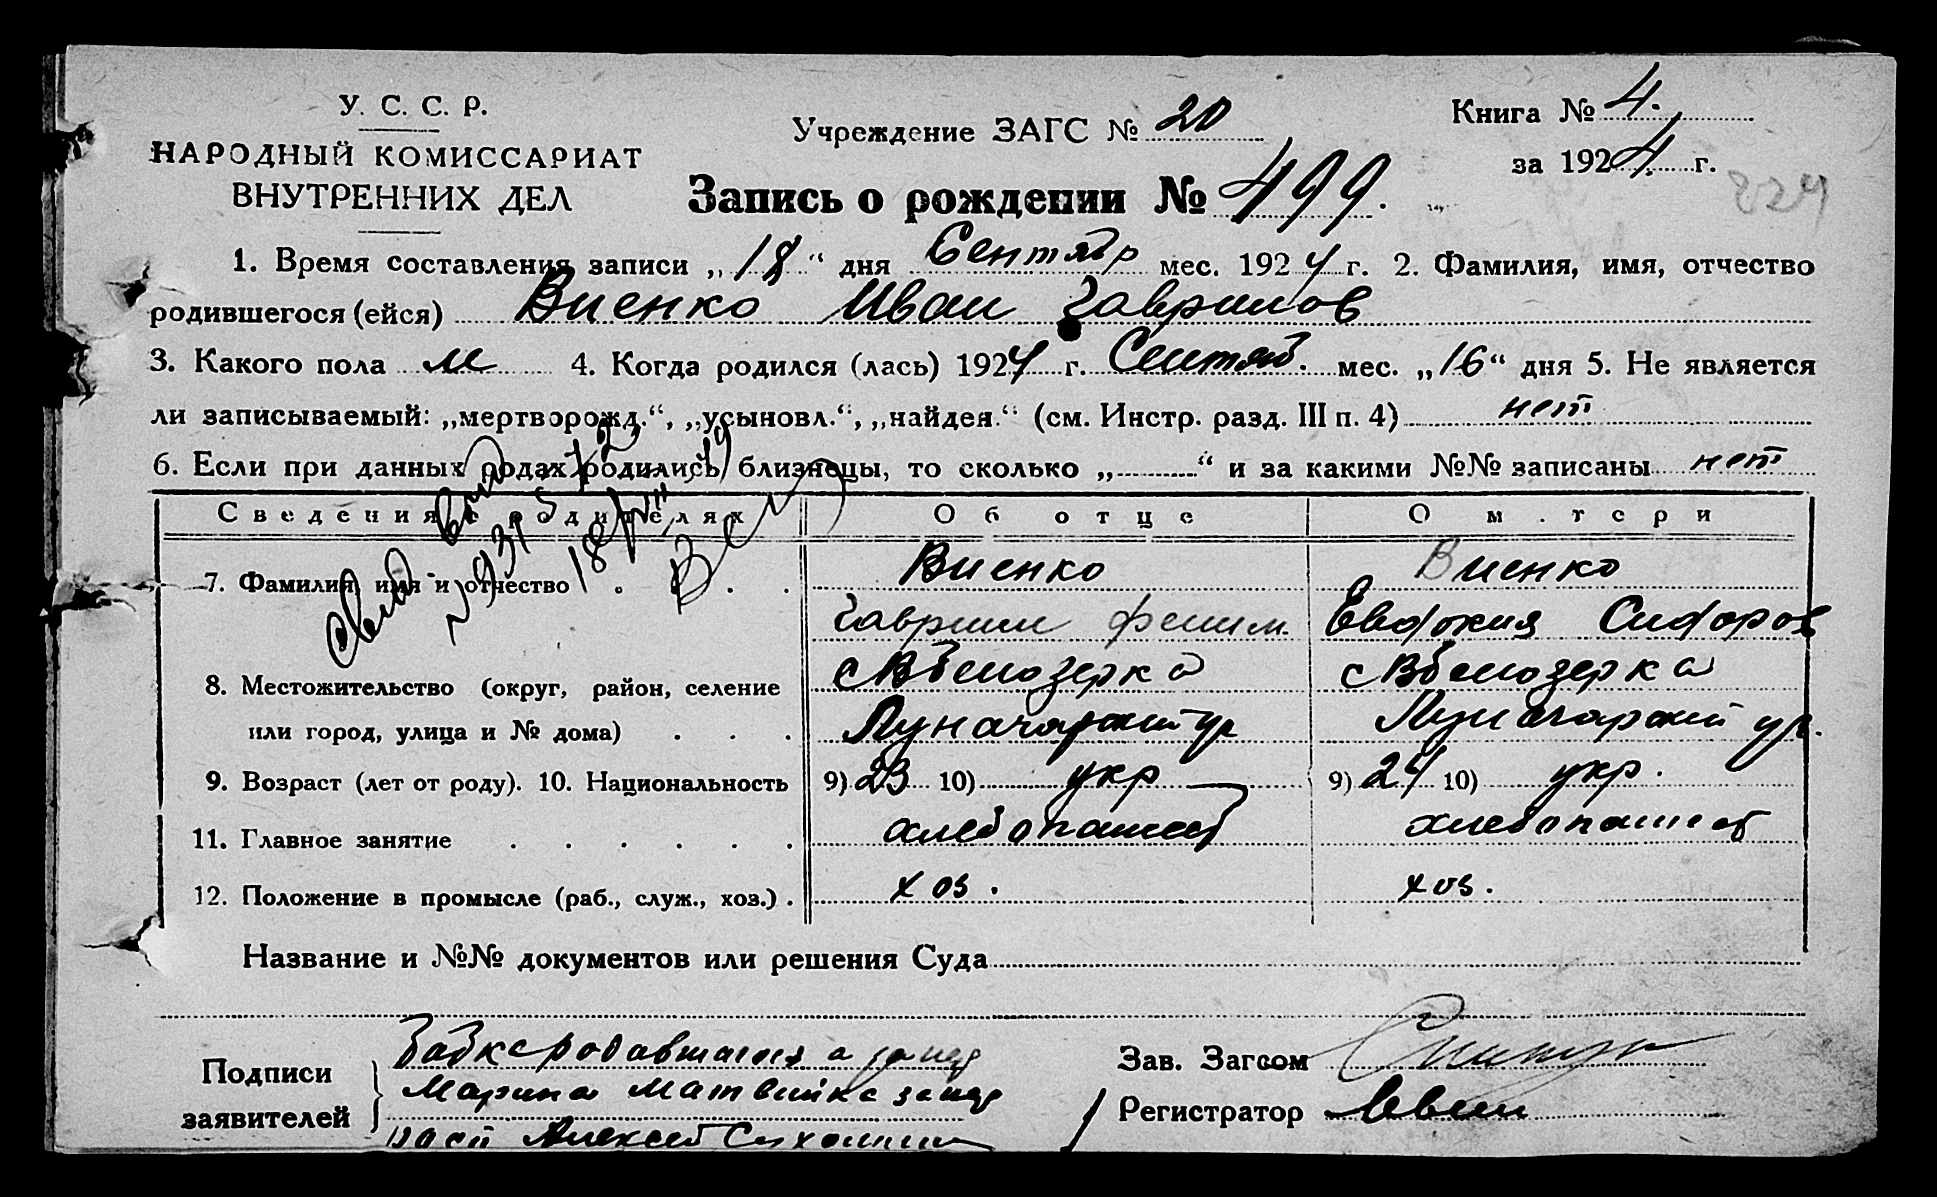 У. С. С. Р.
НАРОДНЫЙ КОМИССАРИАТ
ВНУТРЕННИХ ДЕЛ
Учреждение ЗАГС № 20
Книга № 4.
за 1924 г.
Запись о рождении № 499.
224
1. Время составления записи „18“ дня Сентябр мес. 1924 г. 2. Фамилия, имя, отчество
родившегося (ейся) Виенко Иван Гаврилов
3. Какого пола м 4. Когда родился (лась) 1924 г. Сентяб. мес. „16“ дня 5. Не является
ли записываемый: „мертворожд.“, „усыновл.“, „найден.“ (см. Инстр. разд. III п. 4) нет
6. Если при данных родах родились близнецы, то сколько „ “ и за какими №№ записаны нет
Сведения о родителях Об отце О м.тери
7. Фамилия, имя и отчество Виенко Виенко
Гаврил Филим. Евдокия Сидоров
8. Местожительство (округ, район, селение с Вбелозерка с Вбелозерка
или город, улица и № дома) Луначарский ур Луначарский ур.
9. Возраст (лет от роду). 10. Национальность 9) 23 10) укр 9) 24 10) укр.
11. Главное занятие хлебопашеб хлебопашеб
12. Положение в промысле (раб., служ., хоз.) хоз. хоз.
Название и №№ документов или решения Суда
Подписи
заявителей
Марина Матвейка
Алексей
Зав. Загсом
Регистратор